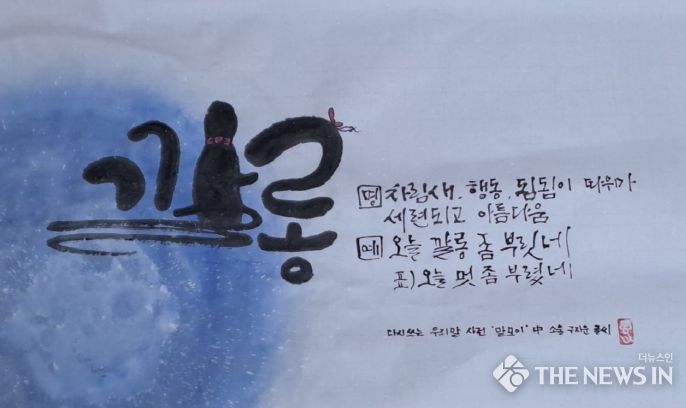 깔롱
명 차림새, 행동, 됨됨이 따위가
세련되고 아름다움
예 오늘 깔롱 좀 부릿네
표)오늘 멋 좀 부렸네
다시쓰는 우리말 사전 '말모이' 中
더뉴스인
THE NEWS IN